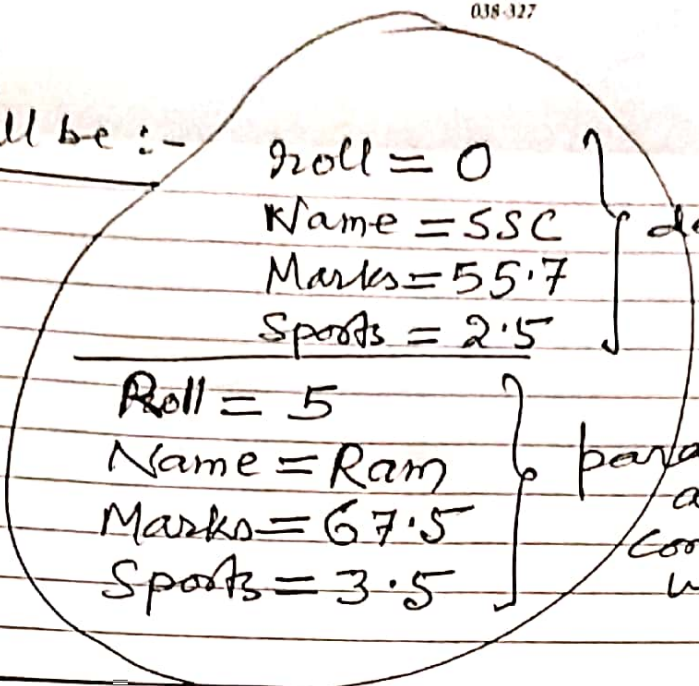 038-327
ll be :-
Roll = 0
Name = SSC
Marks = 55.7
Sports = 2.5
de
Roll = 5
Name = Ram
Marks = 67.5
Sports = 3.5
para
a
con